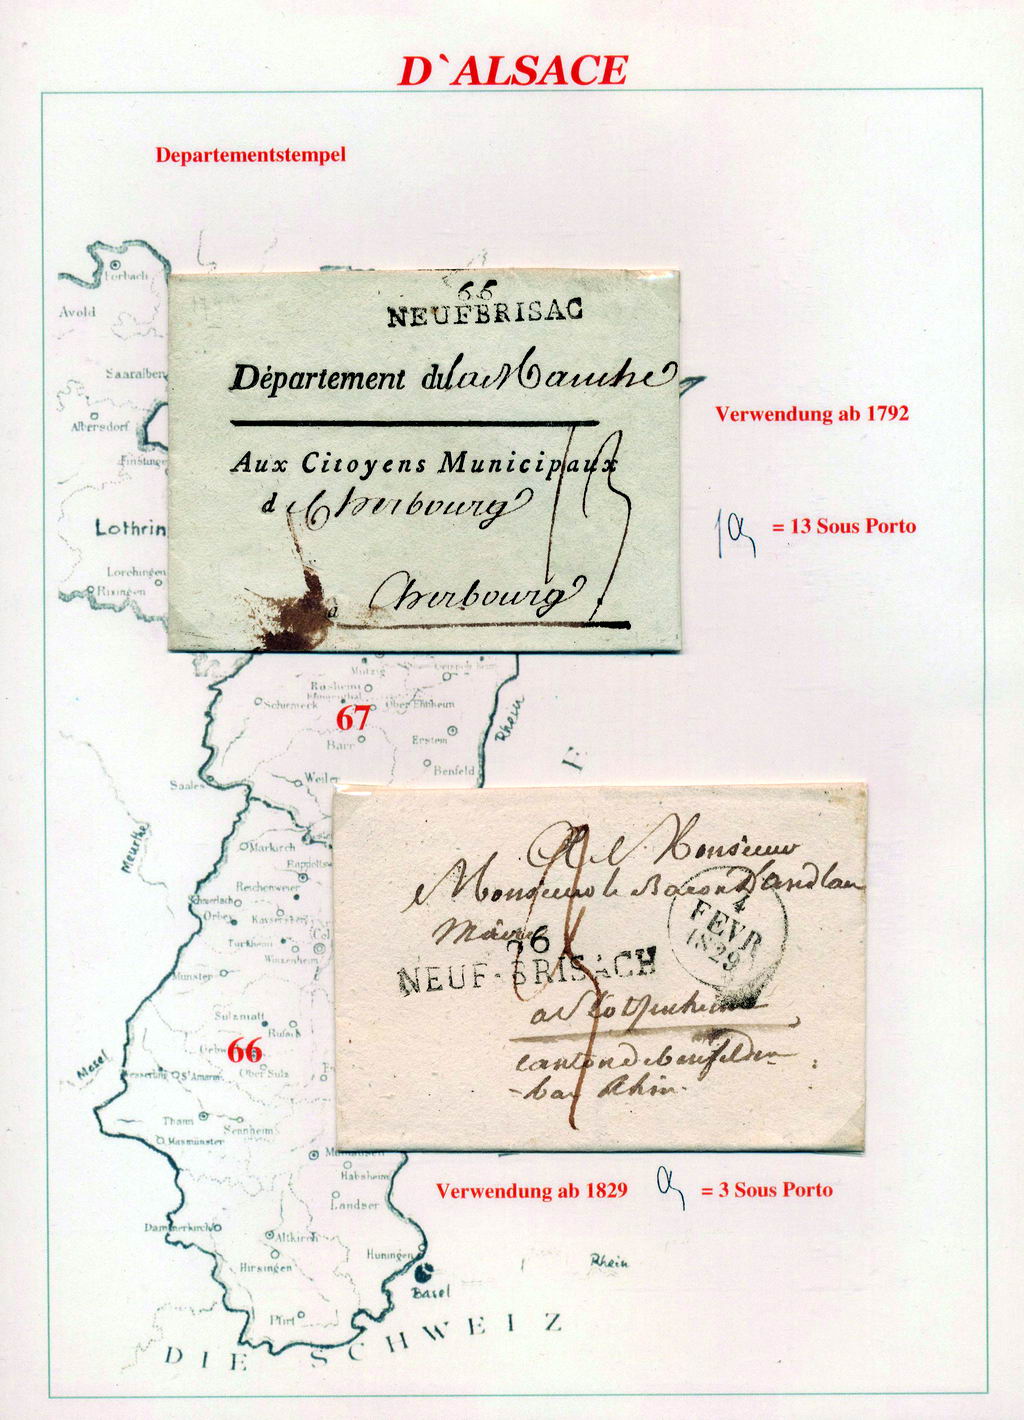 D`ALSACE
Departementstempel
Forbach
Avold
Saaralben
Albersdorf
Finstinge
Lothrin
Lorchingen
Rixingen
66
NEUFBRISAC
Département du la Manche
Aux Citoyens Municipaux
d Cherbourg
13
à Cherbourg
Verwendung ab 1792
= 13 Sous Porto
Mutzig
Rosheim
Schirmeck
Ober Ehnheim
67
Barr
Erstein
Rhein
Benfeld
Saales
Weiler
Meurthe
Markirch
Rappolts
Reichenweier
Schnierlach
Orbey
Kaysersberg
Col
Türkheim
Winzenheim
Münster
Sulzmatt
Rufach
66
Mosel
St Amarin
Ober Sulz
Thann
Sennheim
Masmünster
Mülhausen
Habsheim
Landser
Dammerkirch
Altkirch
Hirsingen
Huningen
Pfirt
Basel
Rhein
DIE SCHWEIZ
A Monsieur
Monsieur le Baron D'andlau
Maire
4
FEVR
1829
76
NEUF-BRISACH
a Stotzenheim
canton de benfelden
bas Rhin
Verwendung ab 1829
= 3 Sous Porto